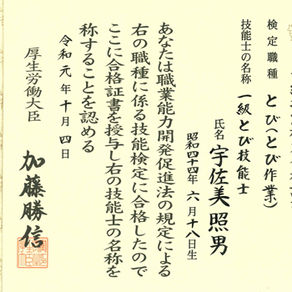 検定職種 とび（とび作業）
技能士の名称 一級とび技能士
氏名 宇佐美照男
昭和四十四年六月十八日生
あなたは職業能力開発促進法の規定による
右の職種に係る技能検定に合格したので
ここに合格証書を授与し右の技能士の名称を
称することを認める
令和元年十月四日
厚生労働大臣 加藤勝信